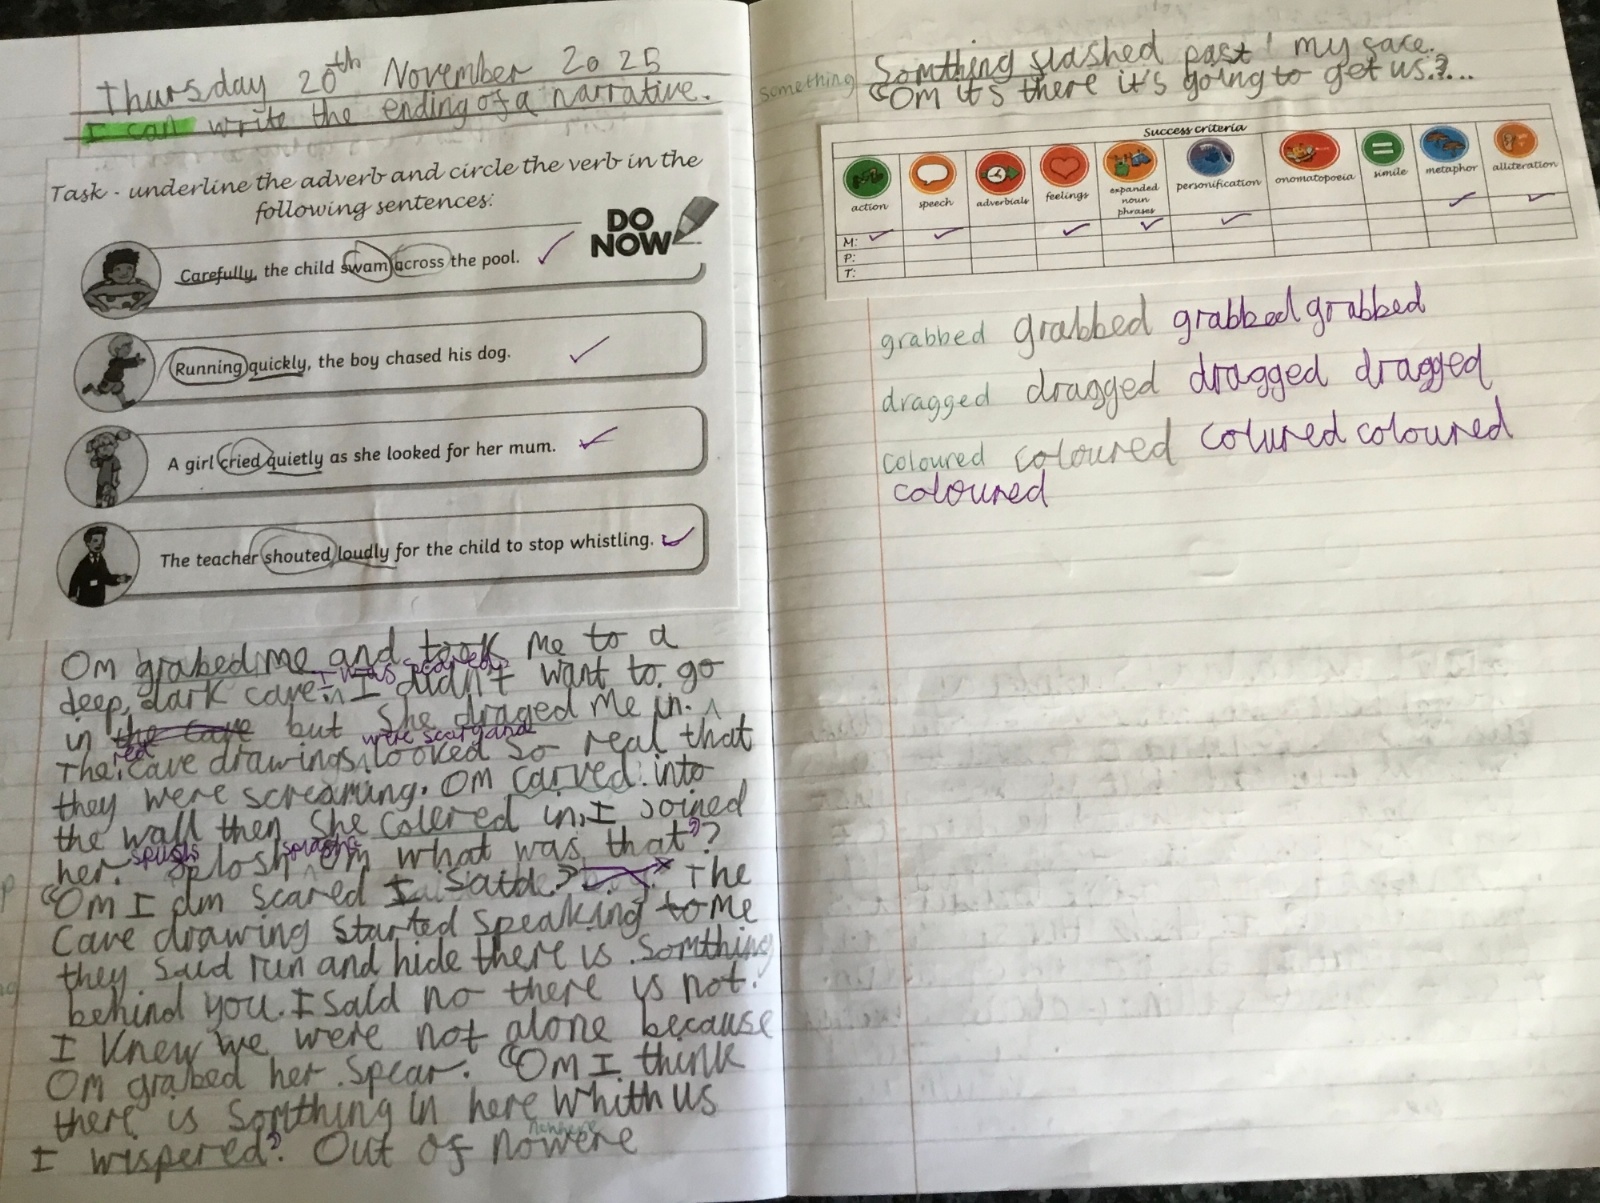 Thursday 20th November 2025
I can write the ending of a narrative.
Task - underline the adverb and circle the verb in the
following sentences:
DO
NOW
Carefully, the child swam across the pool.
Running quickly, the boy chased his dog.
A girl cried quietly as she looked for her mum.
The teacher shouted loudly for the child to stop whistling.
Om grabed me and took me to a
I was scared
deep, dark cave. I didn't want to go
in the cave but she draged me in.
red were scary and
The cave drawings looked so real that
they were screaming. Om carved into
the wall then she colered in, I joined
her. splosh Om what was that?
"Om I am scared I said. The
Cave drawing started speaking to me
they said run and hide there is somthing
behind you. I said no there is not.
I knew we were not alone because
Om grabed her spear. "Om I think
there is somthing in here whith us
nowhere
I wispered? Out of nowere
something
Somthing slashed past my face.
"Om it's there it's going to get us?...
Success criteria
action speech adverbials feelings expanded noun phrases personification onomatopoeia simile metaphor alliteration
M:
P:
T:
grabbed grabbed grabbed grabbed
dragged dragged dragged dragged
coloured coloured colured coloured
coloured